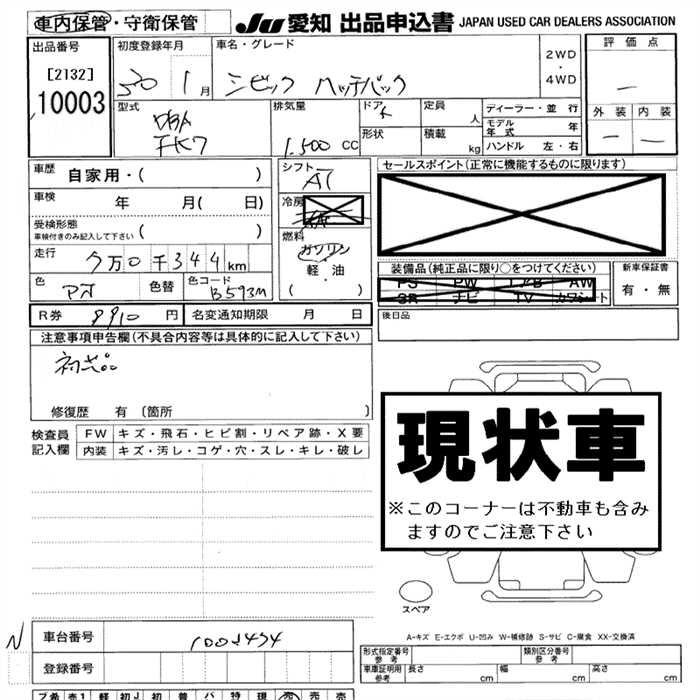 車内保管・守衛保管
JU 愛知 出品申込書 JAPAN USED CAR DEALERS ASSOCIATION
出品番号 初度登録年月 車名・グレード 2WD・4WD 評価点
[2132] 30 1月 シビック ハッチバック
10003
型式 排気量 ドア 定員 人 ディーラー・並 行 外装 内装
DBA FK7 1.500 CC 形状 積載 kg モデル年式 年
ハンドル 左・右
車歴 自家用・( ) シフト AT セールスポイント(正常に機能するものに限ります)
車検 年 月( 日) 冷房
受検形態
車検付きのみ記入して下さい ( ) 燃料 ガソリン
走行 7万0千344km 軽油 装備品(純正品に限り○をつけてください) 新車保証書
・( ) PS PW AW 有・無
色 アオ 色替 色コード B593M SR ナビ TV カワシート
R券 8910円 名変通知期限 月 日 後日品
注意事項申告欄(不具合内容等は具体的に記入して下さい)
修復歴 有 [箇所 ]
現状車
※このコーナーは不動車も含み
ますのでご注意下さい
検査員 FW キズ・飛石・ヒビ割・リペア跡・X要
記入欄 内装 キズ・汚レ・コゲ・穴・スレ・キレ・破レ
スペア
A-キズ E-エクボ U-凹み W-補修跡 S-サビ C-腐食 XX-交換済
N 車台番号 1002434
登録番号
形式指定番号 参考 類別区分番号 参考
車庫証明用 参考 長さ cm 幅 cm 高さ cm